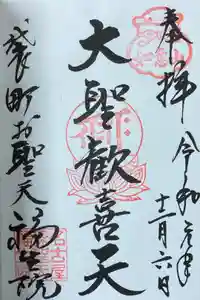 奉拝
令和元年
十二月六日
大聖歓喜天
袋町お聖天
福生院